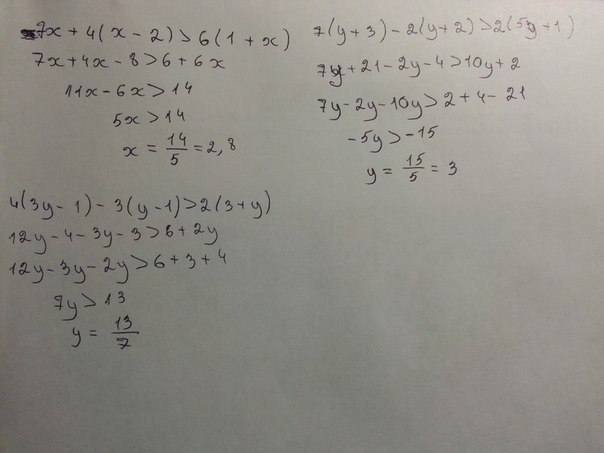 7x + 4(x - 2) > 6(1 + x)
7x + 4x - 8 > 6 + 6x
11x - 6x > 14
5x > 14
x = 14/5 = 2,8
7(y + 3) - 2(y + 2) > 2(5y + 1)
7y + 21 - 2y - 4 > 10y + 2
7y - 2y - 10y > 2 + 4 - 21
-5y > -15
y = 15/5 = 3
4(3y - 1) - 3(y - 1) > 2(3 + y)
12y - 4 - 3y - 3 > 6 + 2y
12y - 3y - 2y > 6 + 3 + 4
7y > 13
y = 13/7